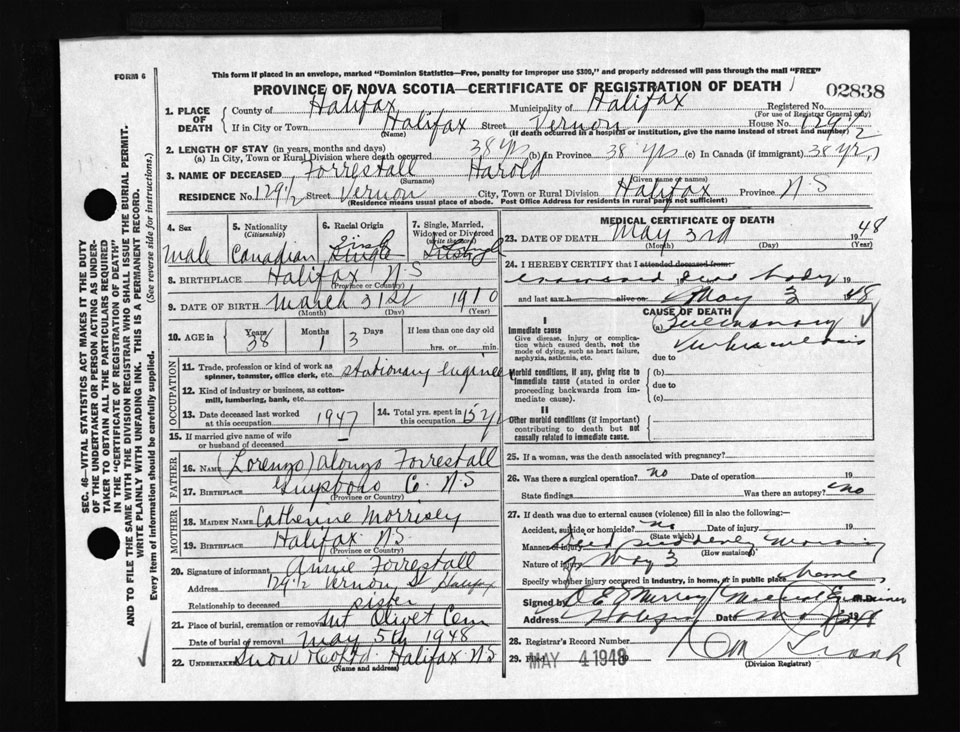 FORM 6
This form if placed in an envelope, marked "Dominion Statistics—Free, penalty for improper use $300," and properly addressed will pass through the mail "FREE"
PROVINCE OF NOVA SCOTIA—CERTIFICATE OF REGISTRATION OF DEATH
02838
1. PLACE OF DEATH County of Halifax Municipality of Halifax Registered No.
(For use of Registrar General only)
If in City or Town Halifax Street Vernon House No. 129½
(Name) (If death occurred in a hospital or institution, give the name instead of street and number)
2. LENGTH OF STAY (in years, months and days)
(a) In City, Town or Rural Division where death occurred 38 yrs (b) In Province 38 yrs (c) In Canada (if immigrant) 38 yrs,
3. NAME OF DECEASED Forrestall Harold
(Surname) (Given name or names)
RESIDENCE No. 129½ Street Vernon City, Town or Rural Division Halifax Province N-S
(Residence means usual place of abode. Post Office Address for residents in rural parts not sufficient)
4. Sex
5. Nationality (Citizenship)
6. Racial Origin
7. Single, Married, Widowed or Divorced (write the word)
Male Canadian Irish Single
8. BIRTHPLACE Halifax N-S
(Province or Country)
9. DATE OF BIRTH March 31st 1910
(Month) (Day) (Year)
10. AGE in Years Months Days If less than one day old
38 1 3 hrs. or min.
OCCUPATION
11. Trade, profession or kind of work as spinner, teamster, office clerk, etc. stationary engineer
12. Kind of industry or business, as cotton-mill, lumbering, bank, etc.
13. Date deceased last worked at this occupation 1947
14. Total yrs. spent in this occupation 15 yrs
15. If married give name of wife or husband of deceased
FATHER
16. NAME (Lorenzo) Alonzo Forrestall
17. BIRTHPLACE Guysboro Co. N-S
(Province or Country)
MOTHER
18. MAIDEN NAME Catherine Morrisey
19. BIRTHPLACE Halifax N.S.
(Province or Country)
20. Signature of informant Annie Forrestall
Address 129½ Vernon St Halifax
Relationship to deceased sister
21. Place of burial, cremation or removal Mt Olivet Cem
Date of burial or removal May 5th 1948
22. UNDERTAKER Snow & Co Ltd. Halifax N-S
(Name and address)
MEDICAL CERTIFICATE OF DEATH
23. DATE OF DEATH May 3rd 1948
(Month) (Day)
24. I HEREBY CERTIFY that I attended deceased from:
examined dead body 19
and last saw h alive on May 3 1948
CAUSE OF DEATH
I
Immediate cause
Give disease, injury or complication which caused death, not the mode of dying, such as heart failure, asphyxia, asthenia, etc.
(a) Pulmonary
Tuberculosis
due to
Morbid conditions, if any, giving rise to immediate cause (stated in order proceeding backwards from immediate cause).
(b)
due to
(c)
II
Other morbid conditions (if important) contributing to death but not causally related to immediate cause.
25. If a woman, was the death associated with pregnancy?
26. Was there a surgical operation? No Date of operation 19
State findings Was there an autopsy? No
27. If death was due to external causes (violence) fill in also the following:—
Accident, suicide or homicide? No Date of injury 19
(State which)
Manner of injury Died suddenly Morning
(How sustained)
Nature of injury May 3
Specify whether injury occurred in industry, in home, or in public place home
Signed by D E Murray Medical Examiner
Address Halifax Date May 1948
28. Registrar's Record Number
29. Filed MAY 4 1948 19
(Division Registrar)
SEC. 46—VITAL STATISTICS ACT MAKES IT THE DUTY
OF THE UNDERTAKER OR PERSON ACTING AS UNDER-
TAKER TO OBTAIN ALL THE PARTICULARS REQUIRED
IN THE "CERTIFICATE OF REGISTRATION OF DEATH"
AND TO FILE THE SAME WITH THE DIVISION REGISTRAR WHO SHALL ISSUE THE BURIAL PERMIT.
WRITE PLAINLY WITH UNFADING INK. THIS IS A PERMANENT RECORD.
Every item of information should be carefully supplied. (See reverse side for instructions.)